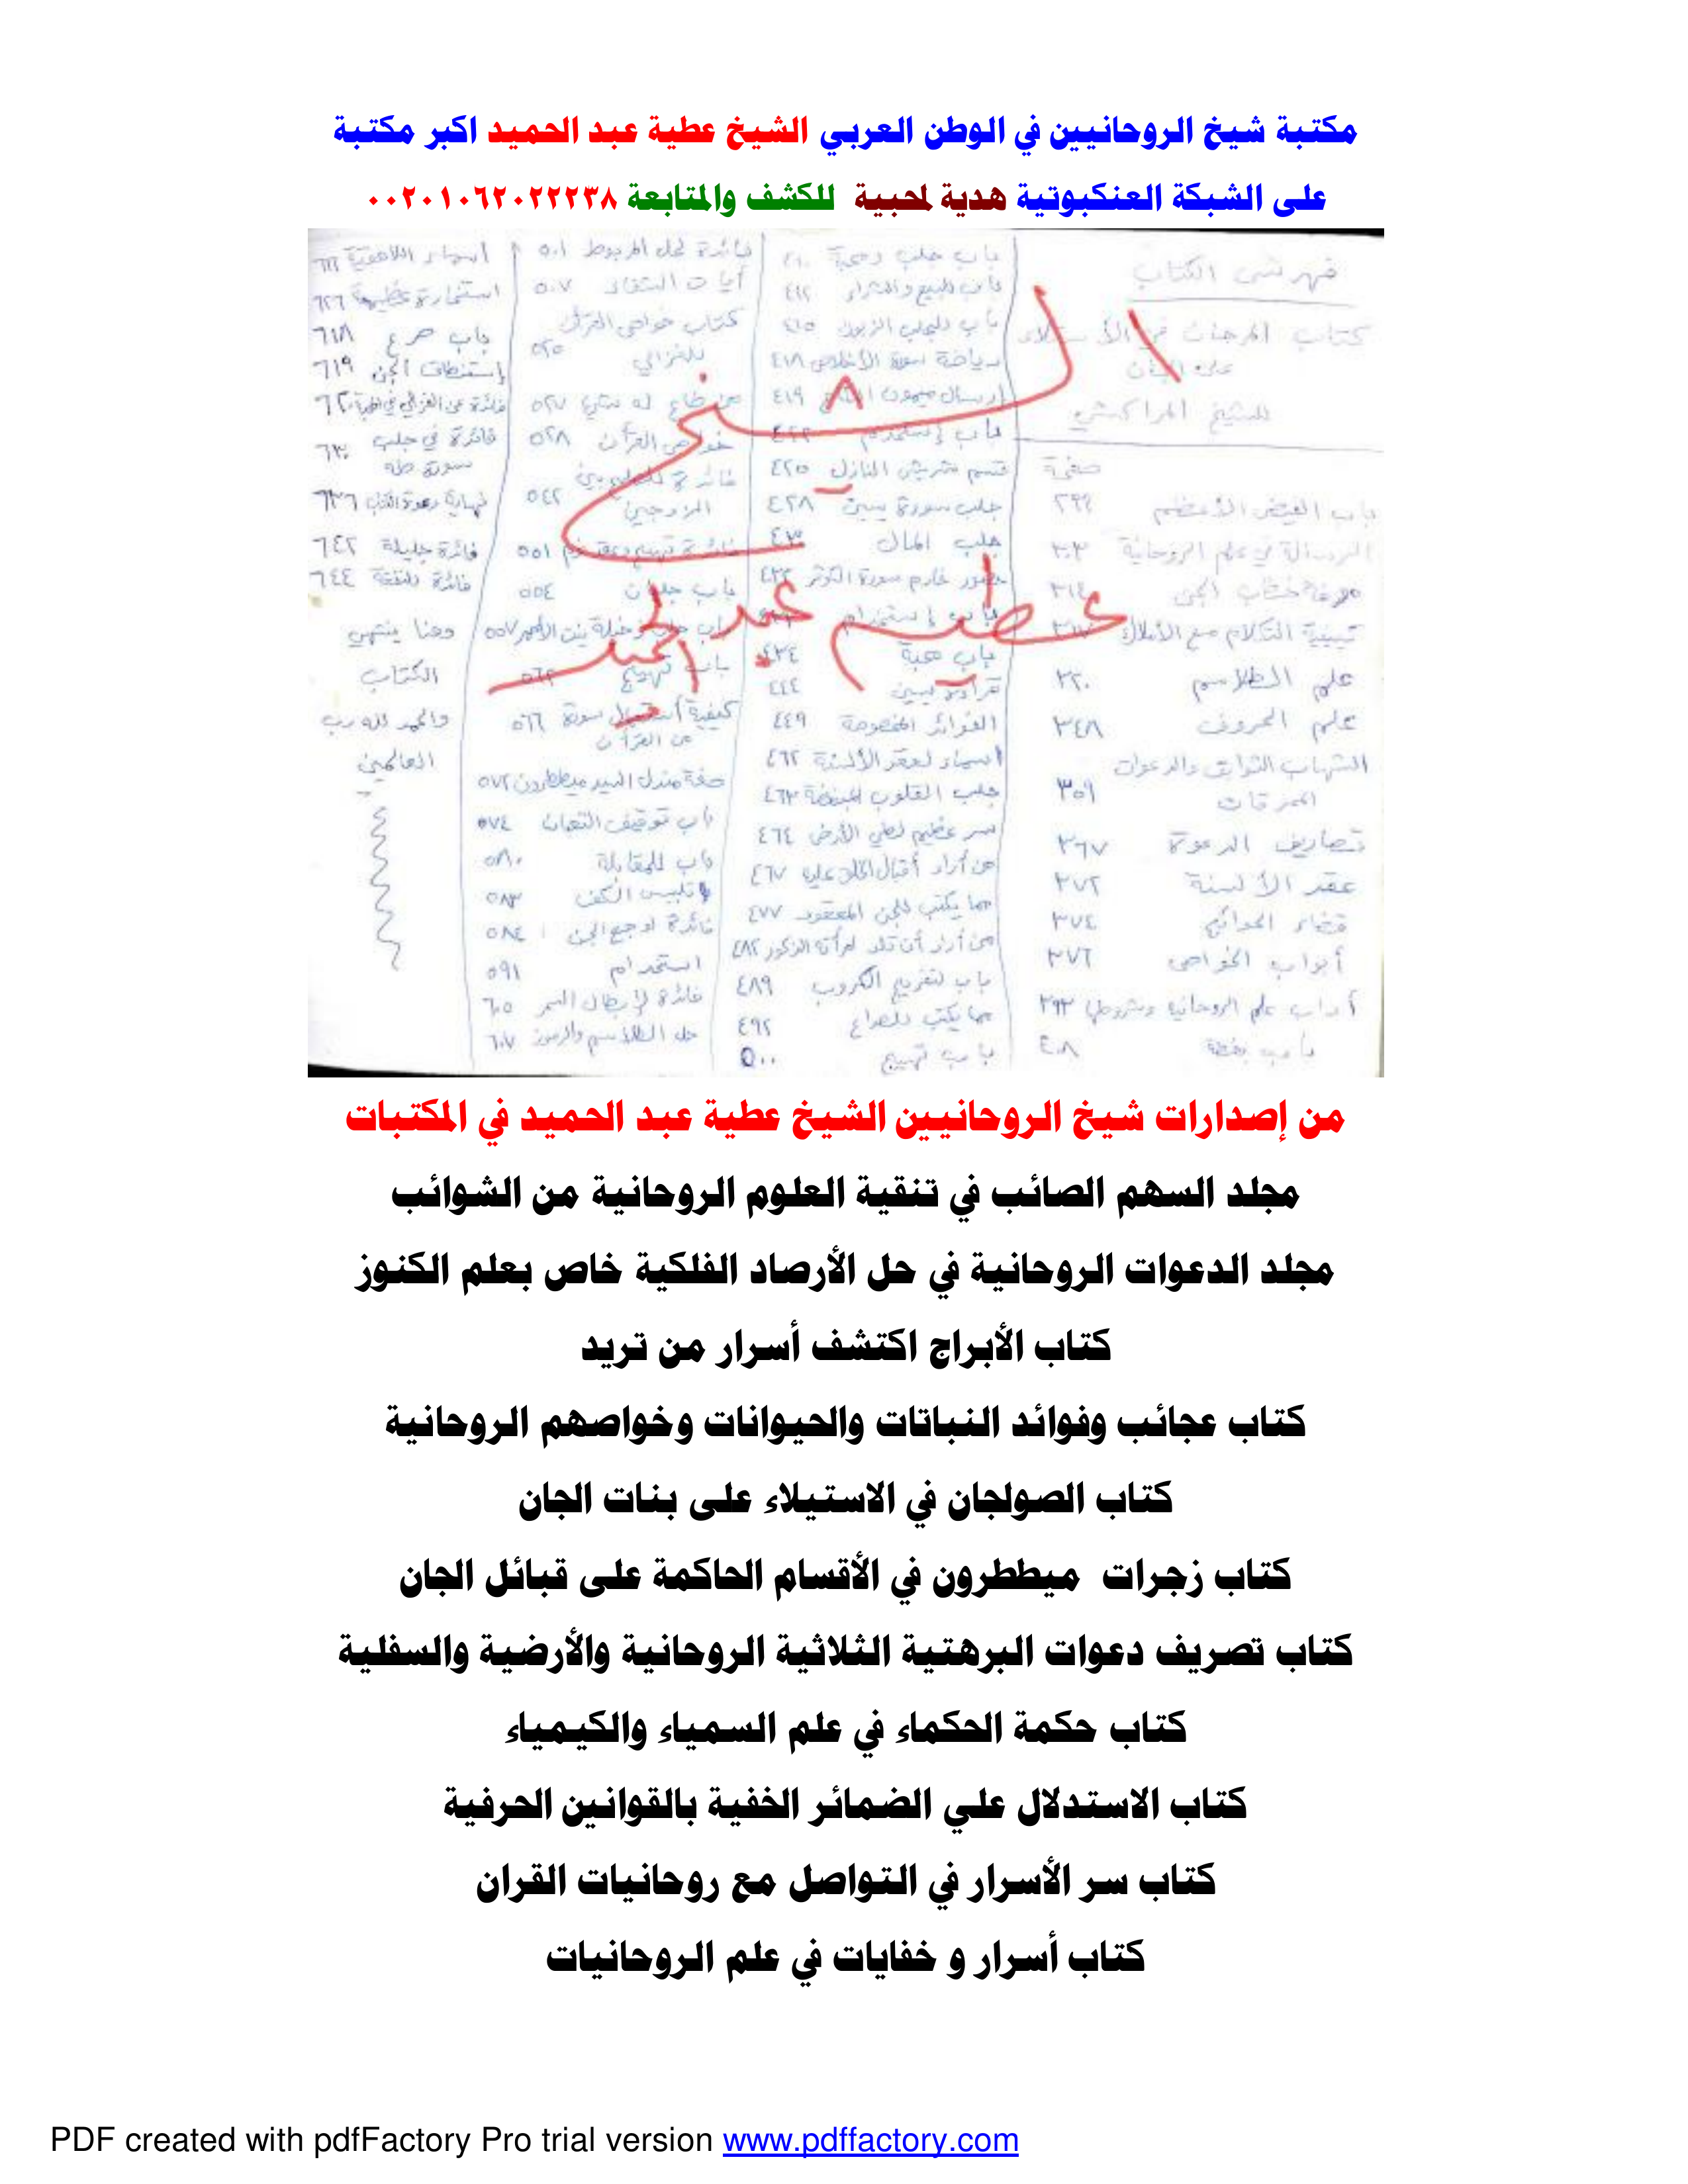 مكتبة شيخ الروحانيين في الوطن العربي الشيخ عطية عبد الحميد اكبر مكتبة
على الشبكة العنكبوتية هدية لمحبية للكشف والمتابعة ٠٠٢٠١٠٦٢٠٢٢٢٣٨
فهرشى الكتاب
كتاب المرجان في الأستلاء
على الجان
للشيخ المراكشي
صفحة
باب الفيض الأعظم ٢٩٩
الرسالة في علم الروحانية ٣٠٣
٣١٤
كيفية التكلام مع الأملاك
علم الطلاسم ٣٢٠
علم الحروف ٣٤٨
الشهاب الثواقب والدعوات
٣٥٩
تصاريف الدعوة ٣٦٧
عقد الألسنة ٣٧٢
قضاء الحوائج ٣٧٤
أبواب الخواص ٣٧٦
أداب علم الروحانية وشروطها ٣٩٣
٤٠٨
باب جلب ومحبة ٤١٠
باب للبيع والشراء ٤١٢
باب لجلب الزبون ٤١٥
رياضة سورة الأخلاص ٤١٨
إرسال ميمون ٤١٩
باب إستخدام
قسم ٤٢٥
جلب سورة يسن ٤٢٨
جلب المال ٤٣٠
خادم سورة الكوثر
باب إستخدام
باب محبة ٤٣٤
قراءة يسن ٤٤٤
الفوائد المخصوصة ٤٤٩
اسماء لعقد الألسنة ٤٦٢
جلب القلوب ٤٦٣
سر عظيم لطي الأرض ٤٦٤
من أراد أقبال الخلق عليه ٤٦٧
مما يكتب للجن المعقود ٤٧٧
من أراد أن تلد امرأته الذكور ٤٨٢
باب لتفريج الكروب ٤٨٩
مما يكتب للصداع ٤٩٢
باب تهييج ٥٠٠
فائدة لحل المربوط ٥٠١
أيات الشفاء ٥٠٧
كتاب خواص القرآن
للغزالي ٥٢٥
من ضاع له شئ ٥٢٧
خواص القرآن ٥٢٨
٥٤٢
٥٥١
باب جلبان ٥٥٤
٥٥٧
باب تهييج ٥٦٢
كيفية سورة ٥٦٦
من القرآن
صفة مندل السيد ميططرون ٥٧٢
باب توقيف ٥٧٤
باب للمقابلة ٥٨٠
تلبيس الكف ٥٨٣
فائدة لوجع ٥٨٤
استخدام ٥٩١
فائدة لإبطال السحر ٦٠٥
حل الطلاسم والرموز ٦٠٧
اسماء
استخارة عظيمة ٦٢٦
باب صرع ٦١٨
إستنطاق الجن ٦١٩
٦٢٠
فائدة في جلب ٦٣٠
سورة طه
نهاية دعوة ٦٣٦
فائدة جليلة ٦٤٢
فائدة للنفقة ٦٤٤
وهنا ينتهي
الكتاب
والحمد لله رب
العالمين
الشيخ
عطيه عبد الحميد
من إصدارات شيخ الروحانيين الشيخ عطية عبد الحميد في المكتبات
مجلد السهم الصائب في تنقية العلوم الروحانية من الشوائب
مجلد الدعوات الروحانية في حل الأرصاد الفلكية خاص بعلم الكنوز
كتاب الأبراج اكتشف أسرار من تريد
كتاب عجائب وفوائد النباتات والحيوانات وخواصهم الروحانية
كتاب الصولجان في الاستيلاء على بنات الجان
كتاب زجرات ميططرون في الأقسام الحاكمة على قبائل الجان
كتاب تصريف دعوات البرهتية الثلاثية الروحانية والأرضية والسفلية
كتاب حكمة الحكماء في علم السمياء والكيمياء
كتاب الاستدلال علي الضمائر الخفية بالقوانين الحرفية
كتاب سر الأسرار في التواصل مع روحانيات القران
كتاب أسرار و خفايات في علم الروحانيات
PDF created with pdfFactory Pro trial version www.pdffactory.com